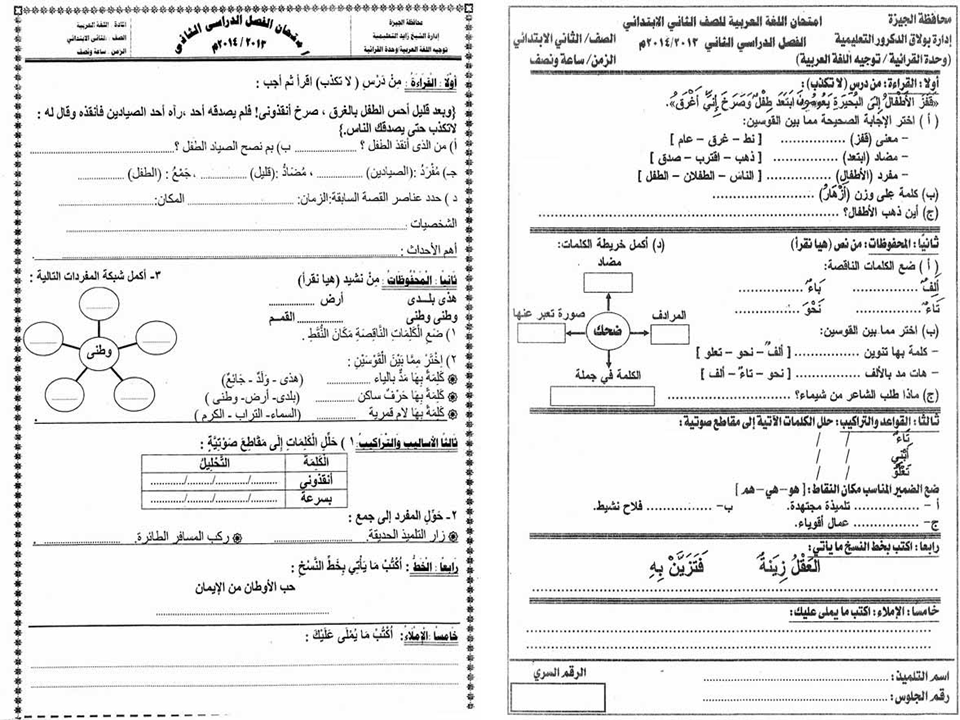 محافظة الجيزة
امتحان اللغة العربية للصف الثاني الابتدائي
إدارة بولاق الدكرور التعليمية
الفصل الدراسي الثاني ٢٠١٤/٢٠١٣م
الصف/ الثاني الابتدائي
(وحدة القرائية / توجيه اللغة العربية)
الزمن/ ساعة ونصف
أولا : القراءة: من درس (لا تكذب):
«قفز الأطفال إلى البحيرة يعومون ابتعد طفل وصرخ إني أغرق».
( أ ) اختر الإجابة الصحيحة مما بين القوسين:
- معنى (قفز) ............... [ نط – غرق – عام ]
- مضاد (ابتعد) ............... [ ذهب – اقترب – صدق ]
- مفرد (الأطفال) ............... [ الناس – الطفلان – الطفل ]
(ب) كلمة على وزن (أزهار) ...............
(ج) أين ذهب الأطفال؟ ...............
ثانيًا : المحفوظات: من نص (هيا نقرأ)
( أ ) ضع الكلمات الناقصة:
ألفٌ ............... باءٌ ...............
تاءٌ ............... نحوَ ...............
(ب) اختر مما بين القوسين:
- كلمة بها تنوين ............... [ ألفٌ – نحو – تعلو ]
- هات مد بالألف ............... [ نحو – تاءٌ – ألف ]
(ج) ماذا طلب الشاعر من شيماء؟ ...............
(د) أكمل خريطة الكلمات:
مضاد
المرادف
ضحك
صورة تعبر عنها
الكلمة في جملة
ثالثًا : القواعد والتراكيب: حلل الكلمات الآتية إلى مقاطع صوتية:
تاءٌ / /
أنتِي / /
تعلو / /
ضع الضمير المناسب مكان النقاط: [ هو – هي – هم ]
أ – ............... تلميذة مجتهدة.
ب- ............... فلاح نشيط.
ج- ............... عمال أقوياء.
رابعا : اكتب بخط النسخ ما يأتي:
العقلُ زينةٌ فتزيَّنْ بِهِ
خامسا : الإملاء: اكتب ما يملى عليك:
اسم التلميذ: ...............
رقم الجلوس: ...............
الرقم السري
محافظة الجيزة
إدارة الشيخ زايد التعليمية
توجيه اللغة العربية/وحدة القرائية
امتحان الفصل الدراسى الثانى
٢٠١٤/٢٠١٣م
المادة : اللغة العربية
الصف : الثانى الابتدائى
الزمن : ساعة ونصف
أولاً : القراءة : مِنْ دَرْس ( لا تكذب) اقرأ ثم أجب :
{وبعد قليل أحس الطفل بالغرق ، صرخ أنقذونى! فلم يصدقه أحد ،رآه أحد الصيادين فأنقذه وقال له :
لاتكذب حتى يصدقك الناس.}
أ) من الذى أنقذ الطفل ؟ ............... ب) بم نصح الصياد الطفل ؟ ...............
جـ) مُفْرَدُ :(الصيادين) ............... ، مُضَادُّ :(قليل) ............... ،جَمْعُ : (الطفل) ...............
د ) حدد عناصر القصة السابقة:الزمان: ............... المكان: ...............
الشخصيات : ...............
أهم الأحداث : ...............
ثانياً : المَحْفُوظَات : مِنْ نشيد (هيا نقرأ)
هذى بلـــدى ............... أرض ...............
وطنى وطنى ............... القمـــم
١) ضَعِ الْكَلِمَاتِ النَّاقِصَةِ مَكَانَ النُّقَطِ .
٢) اِخْتَرْ مِمَّا بَيْنَ الْقَوْسَيْنِ :
كَلِمَةٌ بِهَا مَدٌّ بالياء ............... (هذى - وَلَدٌ - جَائِعٌ)
كَلِمَةٌ بِهَا حَرْفٌ ساكن ............... (بلدى- أرض- وطنى )
كَلِمَةٌ بِهَا لام قمرية ............... (السماء- التراب - الكرم )
٣- أكمل شبكة المفردات التالية :
وطنى
ثالثاً الأساليب والتراكيب: ١ ) حَلِّل الْكَلِمَاتِ إلَى مَقَاطِعَ صَوْتِيَّةٍ :
الْكَلِمَة التَّحْلِيلُ
أنقذونى ......../......../......../........
بسرعة ......../......../......../........
٢- حَوِّل المفرد إلى جمع :
زار التلميذ الحديقة. ...............
ركب المسافر الطائرة. ...............
رابعاً : الخطُّ : أُكْتُبْ مَا يَأْتِي بِخَطِّ النَّسْخِ :
حب الأوطان من الإيمان
خامساً :الإملاءُ: أُكْتُبْ مَا يُمْلَى عَلَيْكَ :